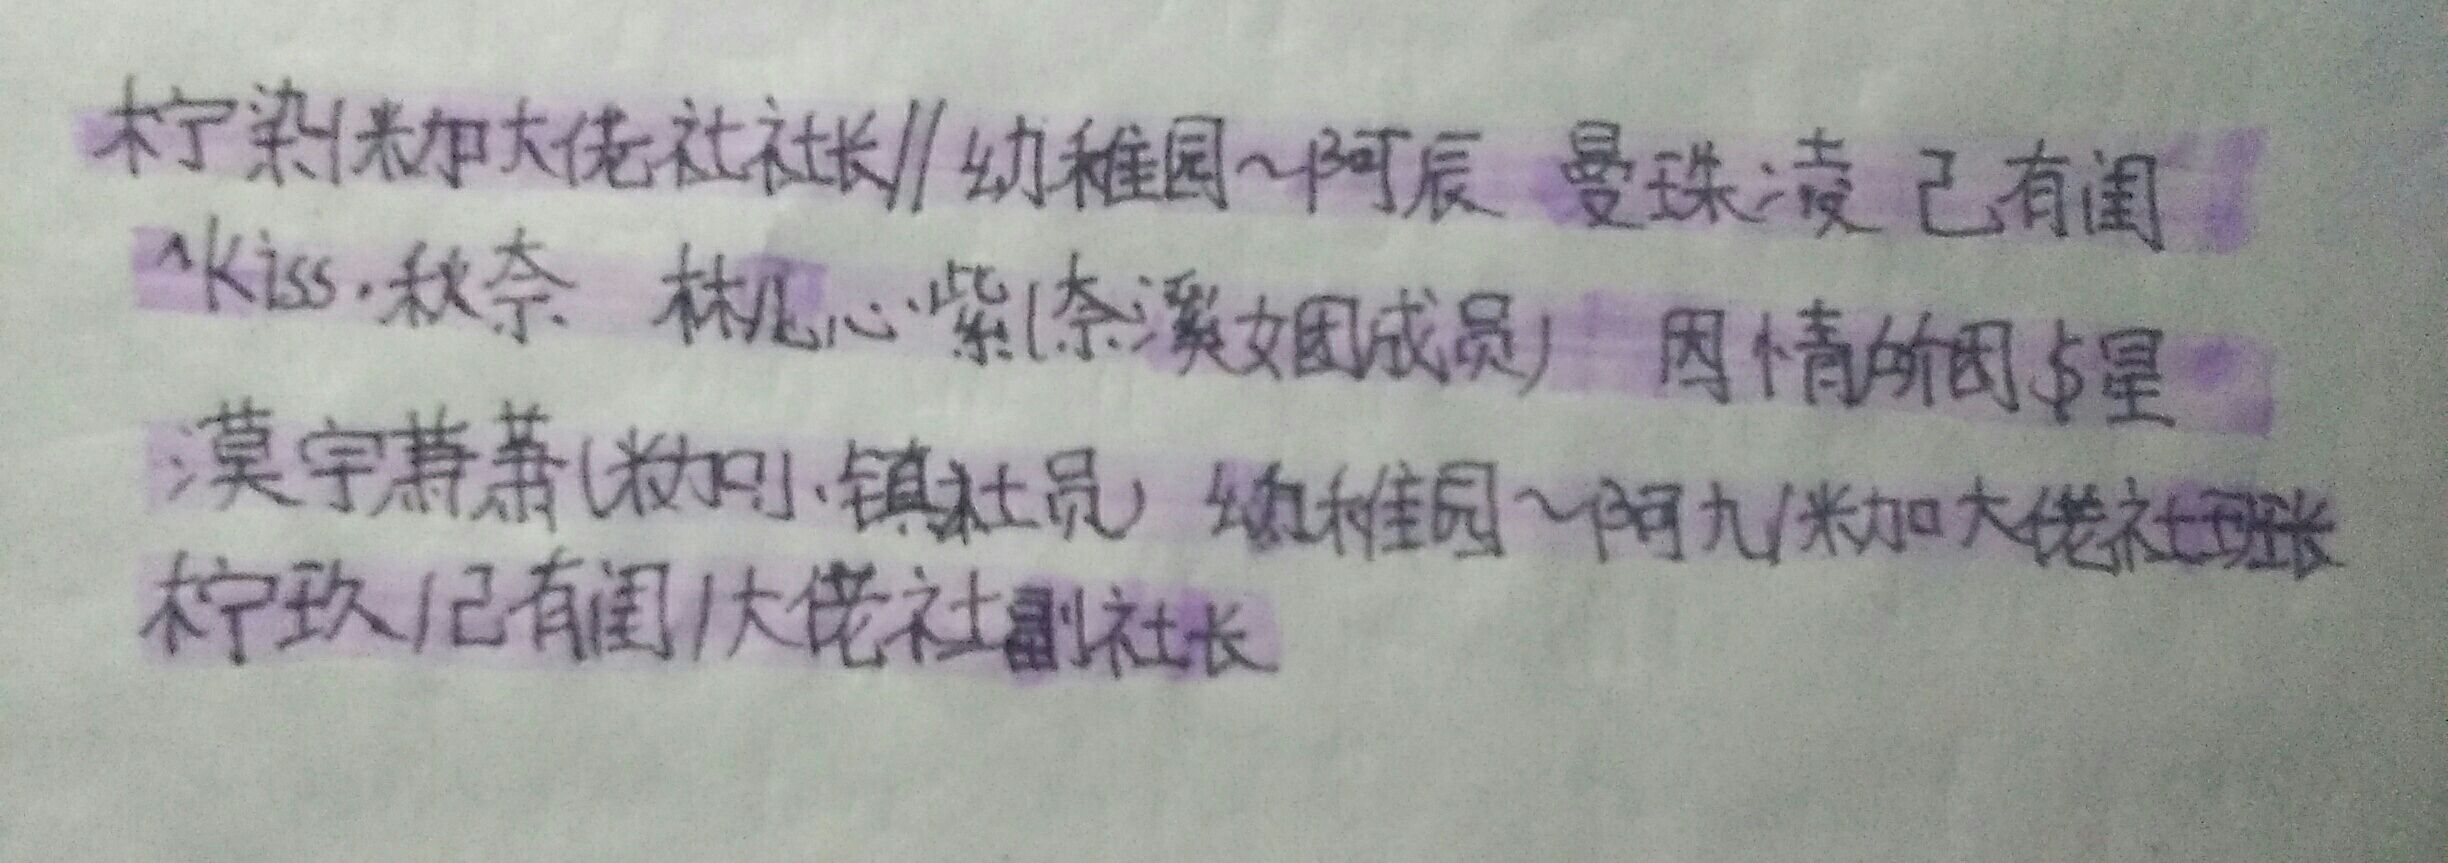 柠染|米加大佬社社长//幼稚园~阿辰 曼珠凌 己有闺
^Kiss.秋奈 林见心紫(奈溪女团成员) 因情所困$星
漠宇萧萧(米加.镇社员) 幼稚园~阿九/米加大佬社班长
柠玖/己有闺/大佬社副社长